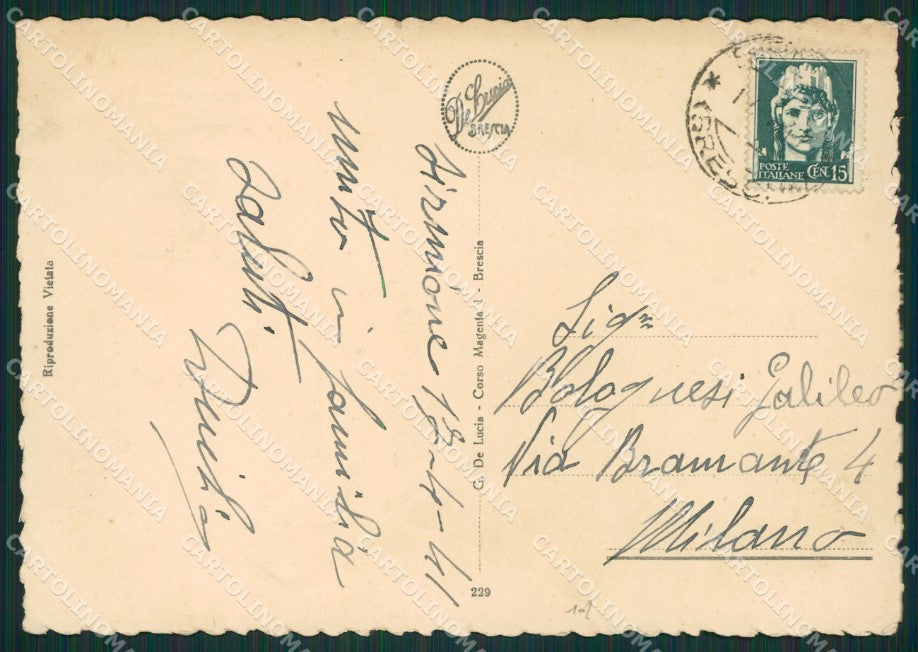 De Lucia
BRESCIA
POSTE
ITALIANE CEN. 15
(BRESC
Sirmione 18-4-41
unito in famiglia
saluti.
G. De Lucia - Corso Magenta 1 - Brescia
Riproduzione Vietata
229
Sigr
Bolognesi Galileo
Via Bramante 4
Milano
CARTOLINOMANIA